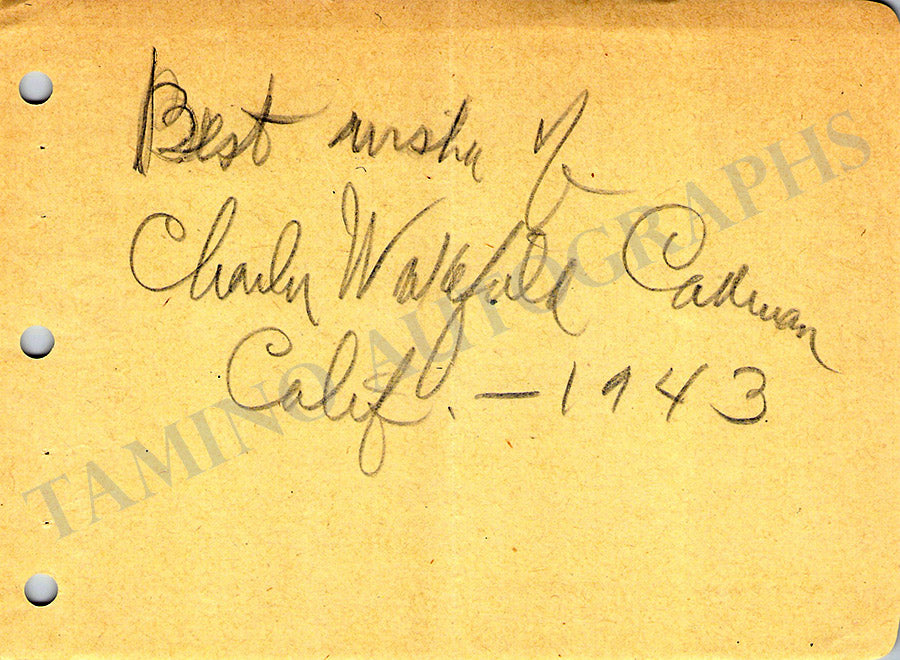 Best wishes of
Charles Wakefield Cadman
Calif. — 1943
TAMINO AUTOGRAPHS